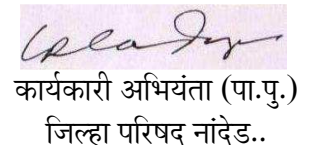 कार्यकारी अभियंता (पा.पु.)
जिल्हा परिषद नांदेड..